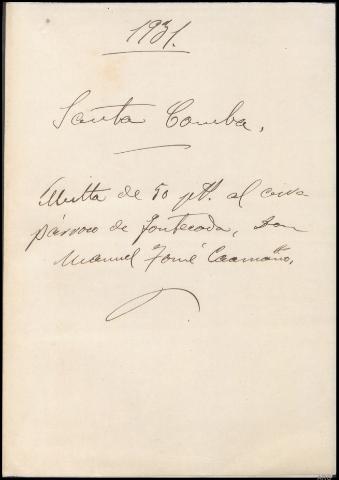 1931.
Santa Comba.
Multa de 50 pts. al cura
párroco de Fontecada, Don
Manuel José Caamaño.